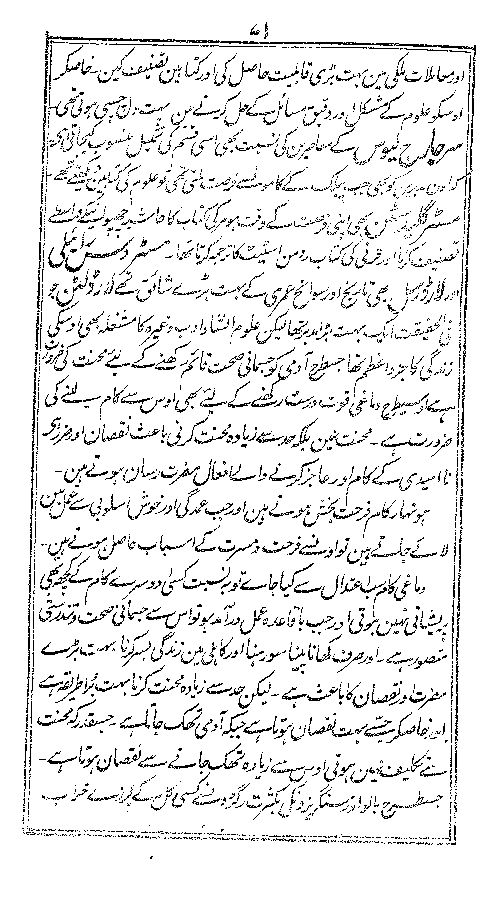 ۷۱
اور معاملات ملکی مین بہت بڑی قابلیت حاصل کی اور کتابین تصنیف کین ۔ خاصکر
اوسکو علوم کے مشکل اور دقیق مسائل کے حل کرنے مین بہت دلچسپی ہوتی تھی ۔
سر جارج لیوس کے معاصرین کی نسبت بھی اسی قسم کی تکمیل منسوب کیجاتی ہے
کو بھی جب پبلک کے کام سے فرصت ملتی تھی تو علوم کی کتابین لکھتے تھے
مسٹر گلیڈسٹن بھی اپنی فرصت کے وقت ہومر کی کتاب کا حاشیہ چھپوانے کے واسطے
تصنیف کرتا اور فرنی کی کتاب رومن اسٹیٹ کا ترجمہ کرتا تھا ۔ مسٹر ڈسرائیلی
اور لارڈ رسل بھی تاریخ اور سوانح عمری کے بہت بڑے شائق تھے لارڈ لٹن جو
فی الحقیقت ایک بہت بڑا مدبر تھا لیکن علوم انشا و ادب وغیرہ کا مشغلہ بھی اوسکی
زندگی کا جزو اعظم تھا جسطرح آدمی کو جسمانی صحت قائم رکھنے کے لئے محنت کی ضرورت
ہے اوسیطرح دماغی قوت درست رکھنے کے لئے بھی اوس سے کام لینے کی
ضرورت ہے ۔ محنت نہین بلکہ حد سے زیادہ محنت کرنی باعث نقصان اور ضرر ہے
نا امیدی کے کام اور عاجز کرنے والے افعال مضرت رسان ہوتے ہین ۔
ہونہار کام فرحت بخش ہوتے ہین اور جب عمدگی اور خوش اسلوبی سے عمل مین
لائے جاتے ہین تو اونسے فرحت و مسرت کے اسباب حاصل ہوتے ہین ۔
دماغی کام باعتدال سے کیا جائے تو بہ نسبت کسی دوسرے کام کے کچھ بھی
پریشانی نہین ہوتی اور جب باقاعدہ عمل درآمد ہو تو اس سے جسمانی صحت و تندرستی
متصور ہے ۔ اور صرف کھانا پینا سو رہنا اور کاہلی مین زندگی بسر کرنا بہت بڑے
مضرت اور نقصان کا باعث ہے ۔ لیکن حد سے زیادہ محنت کرنا بہت بُرا طریقہ ہے
اور خاصکر جب سے بہت نقصان ہوتا ہے جبکہ آدمی تھک جاتا ہے ۔ جسقدر کہ محنت
سے تکلیف نہین ہوتی اوس سے زیادہ تھک جانے سے نقصان ہوتا ہے ۔
جسطرح بالو اور سنگریزونکی بکثرت رگڑونسے کسی کل کے پرزے خراب